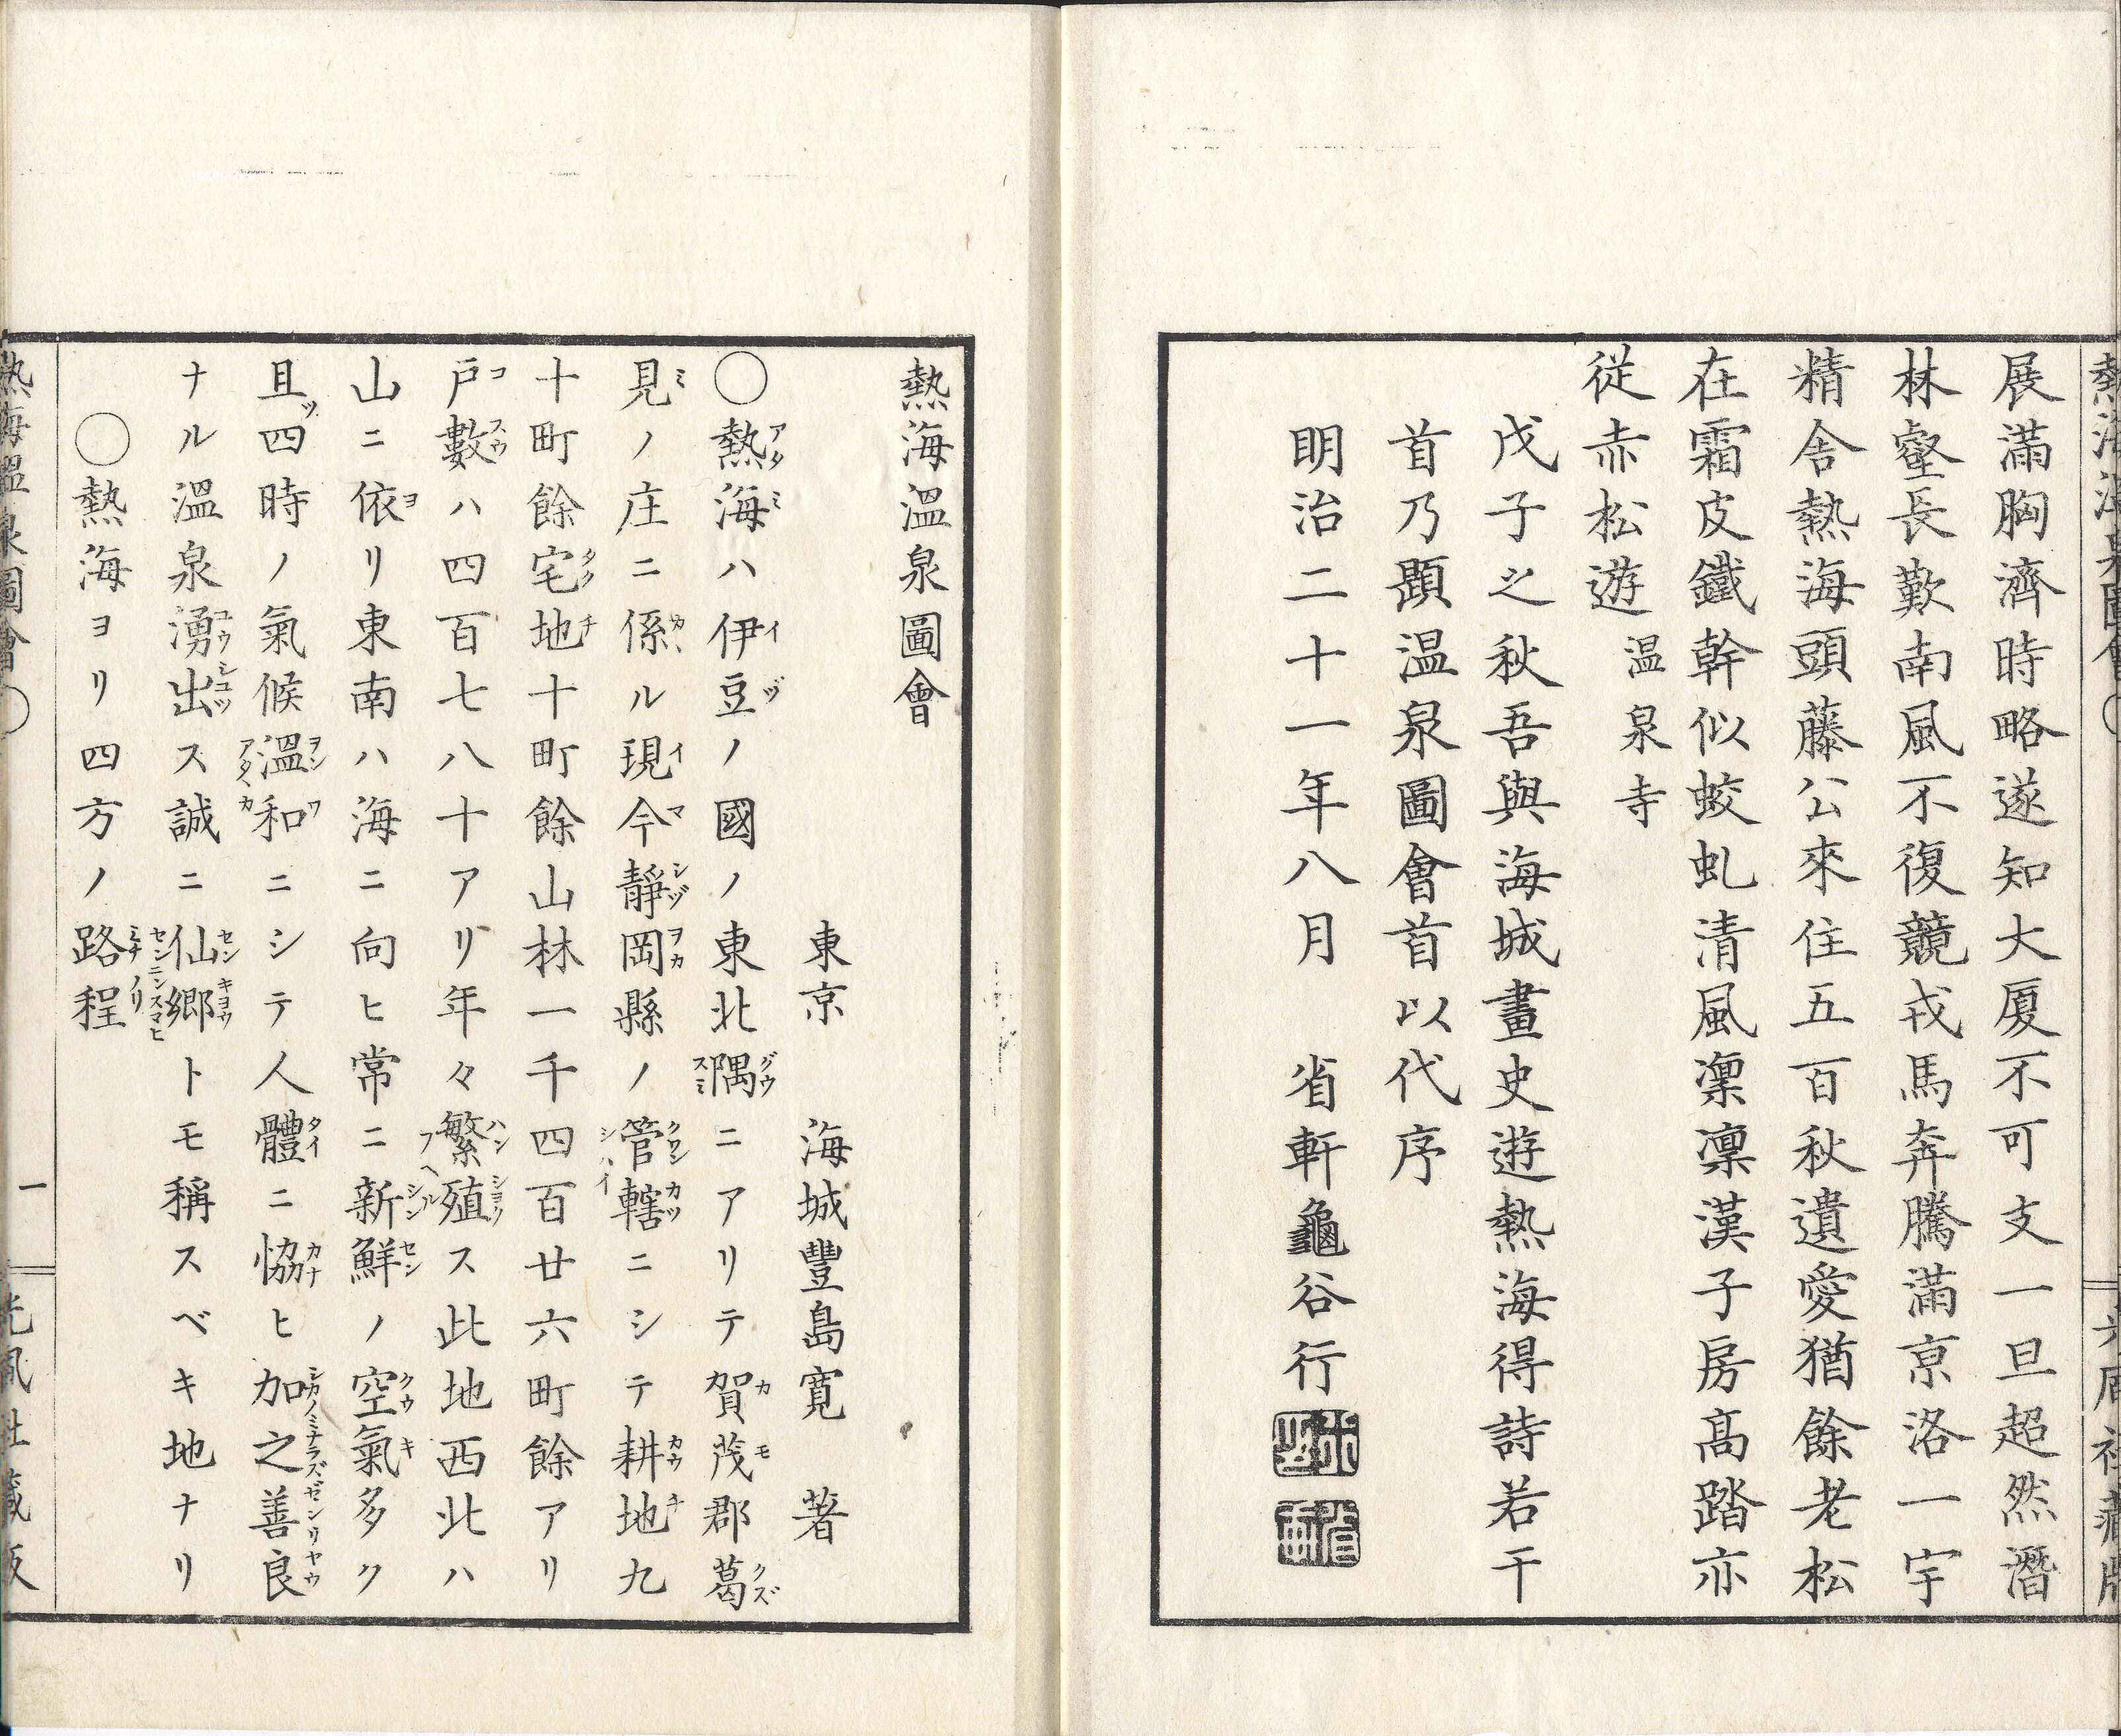 展滿胸濟時略遂知大厦不可支一旦超然潛
林壑長歎南風不復競戎馬奔騰滿亰洛一宇
精舎熱海頭藤公來住五百秋遺愛猶餘老松
在霜皮鐵幹似蛟虬清風凜凜漢子房髙踏亦
従赤松遊 温泉寺
戊子之秋吾與海城畫史遊熱海得詩若干
首乃顕温泉圖會首以代序
明治二十一年八月 省軒龜谷行
熱海溫泉圖會
東京 海城豐島寛 著
〇熱海ハ伊豆ノ國ノ東北隅ニアリテ賀茂郡葛
見ノ庄ニ係ル現今靜岡縣ノ管轄ニシテ耕地九
十町餘宅地十町餘山林一千四百廿六町餘アリ
戸數ハ四百七八十アリ年々繁殖ス此地西北ハ
山ニ依リ東南ハ海ニ向ヒ常ニ新鮮ノ空氣多ク
且四時ノ氣候溫和ニシテ人體ニ恊ヒ加之善良
ナル溫泉湧出ス誠ニ仙郷トモ稱スベキ地ナリ
〇熱海ヨリ四方ノ路程
熱海溫泉圖會 〇 一